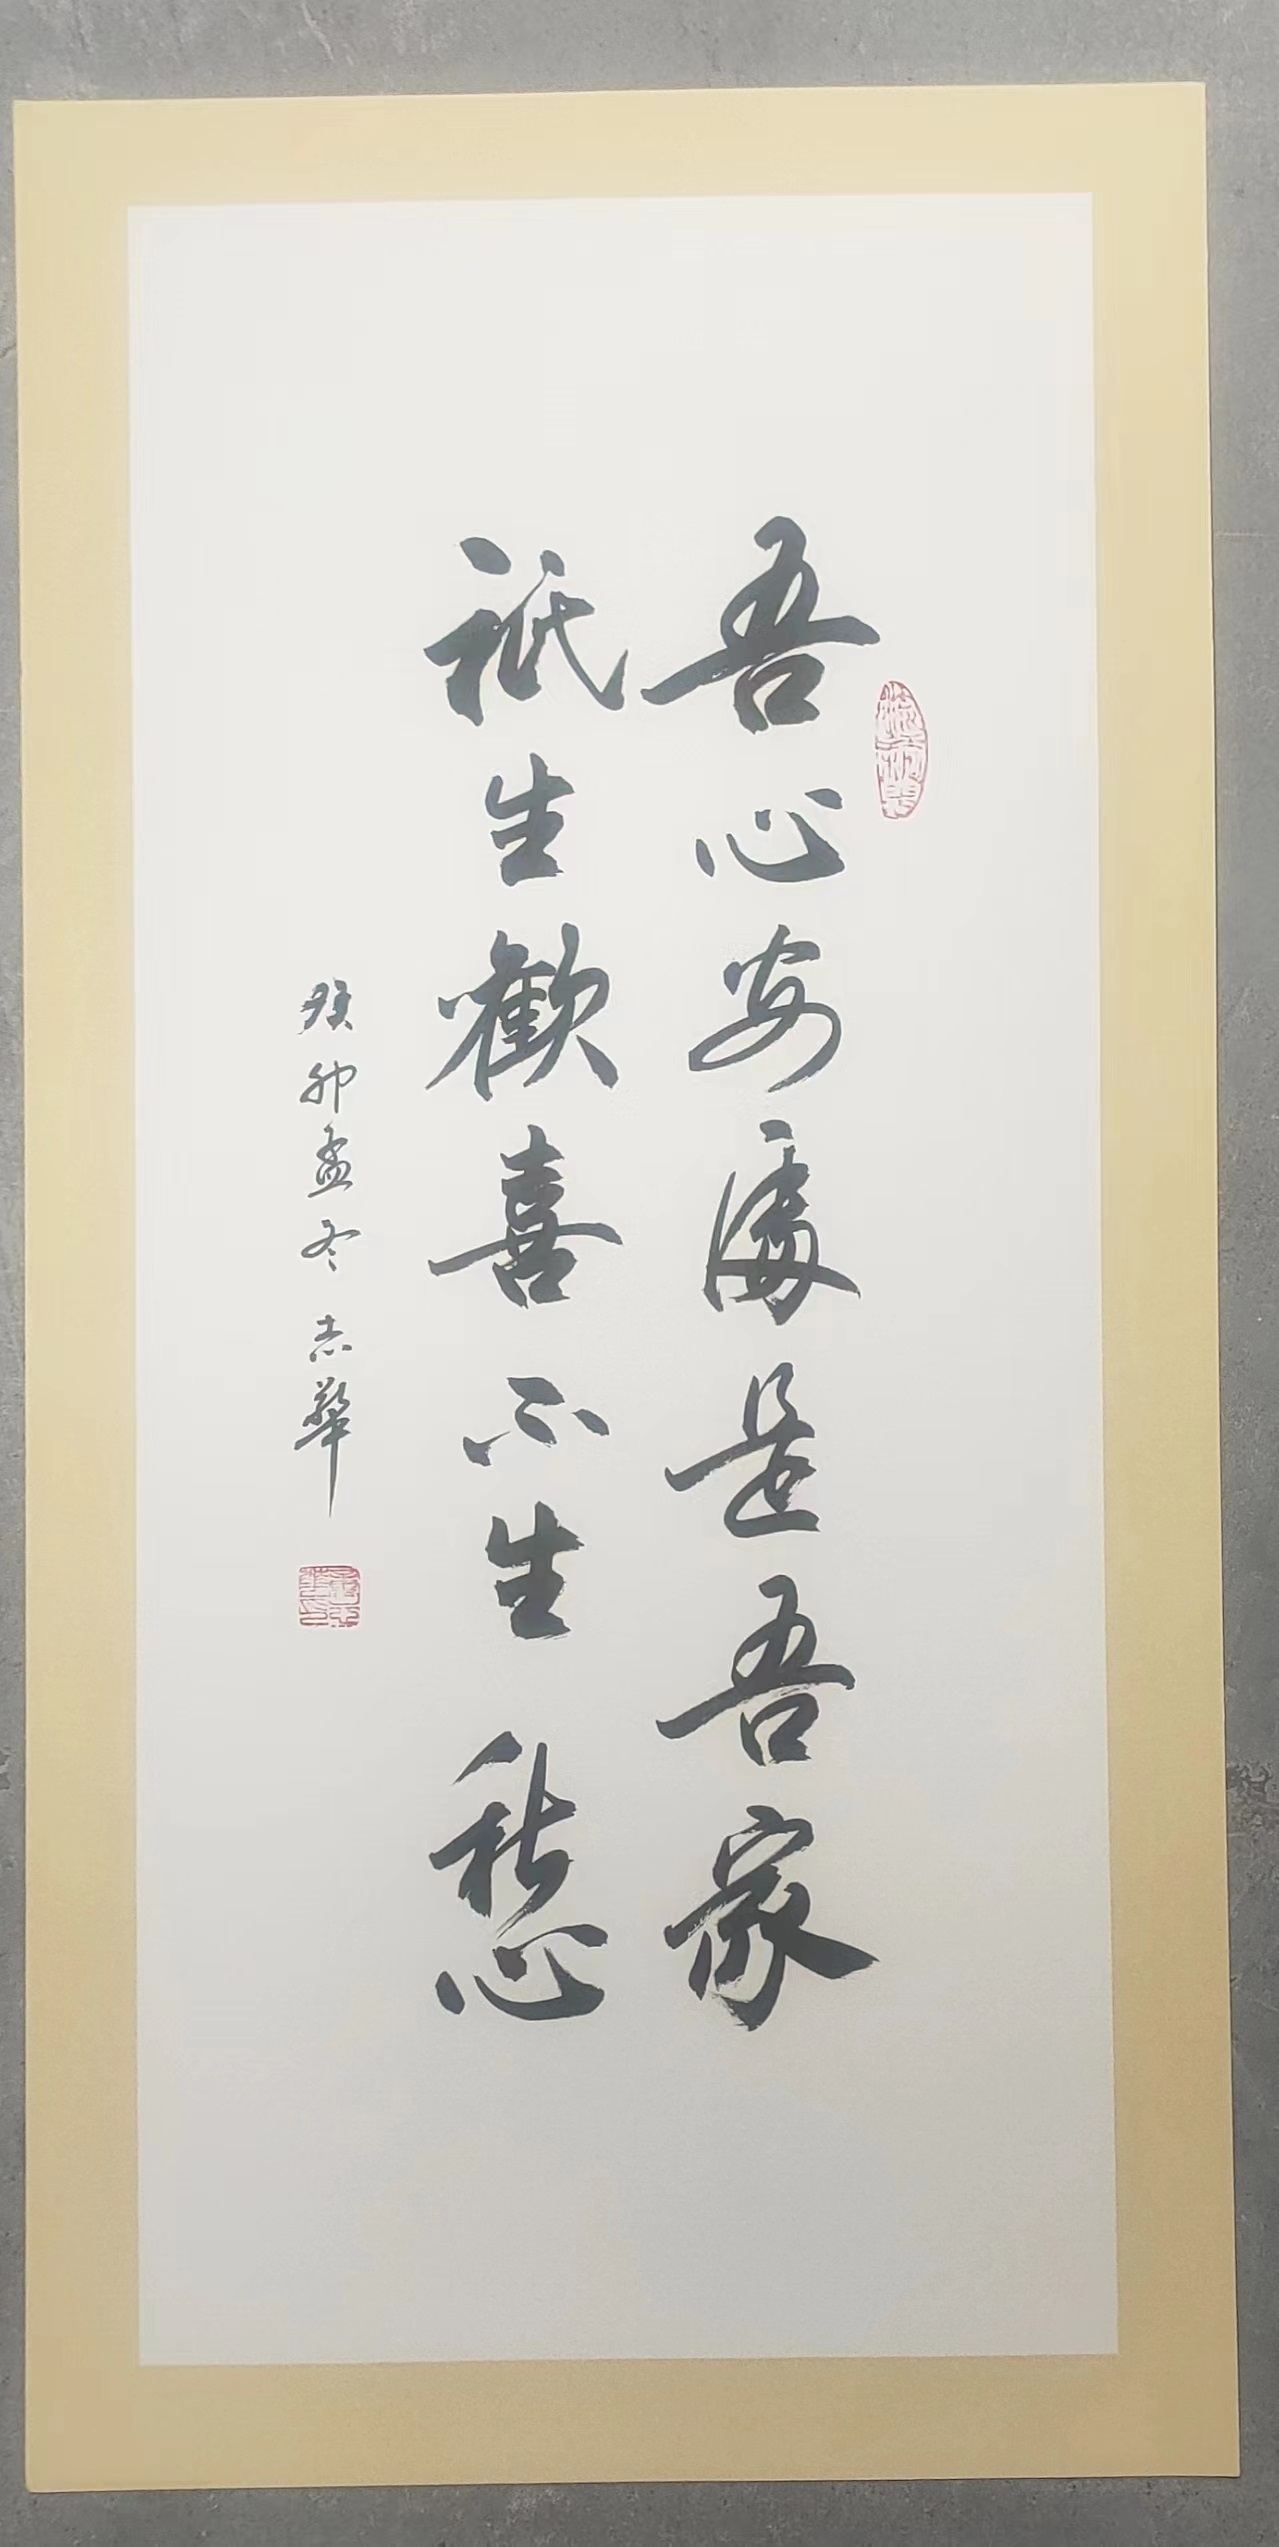 吾心安處是吾家
祇生歡喜不生愁
癸卯孟冬志華